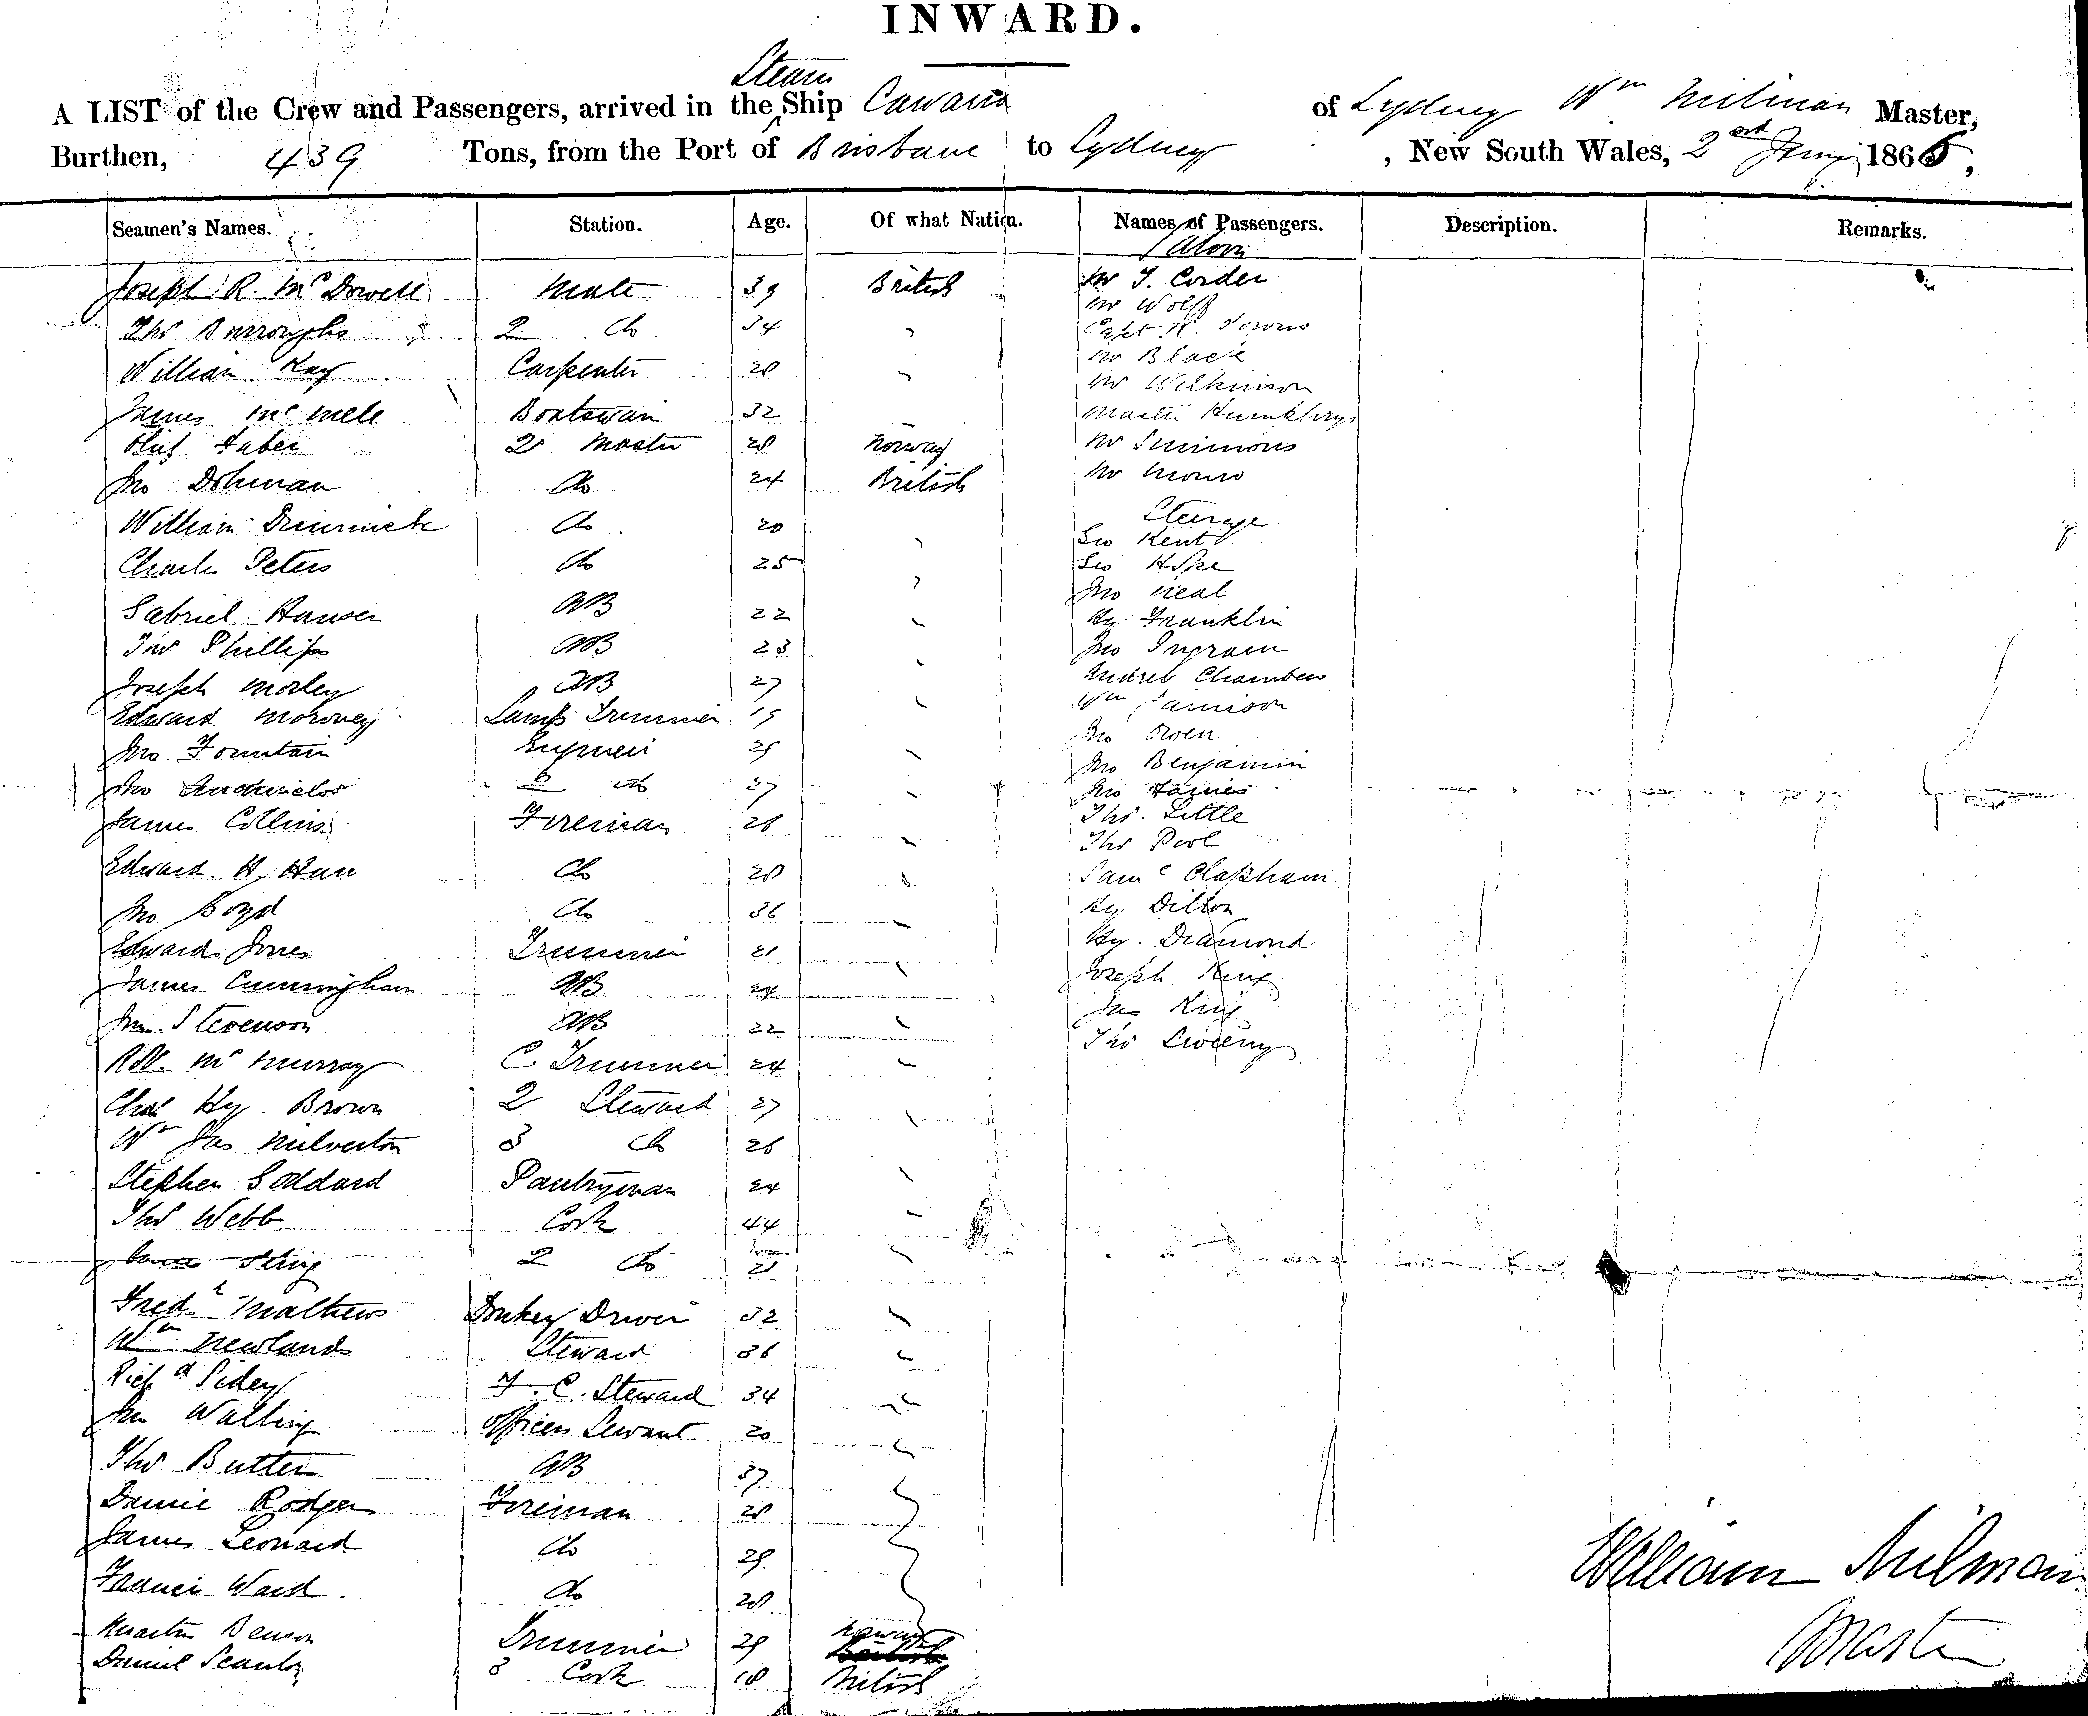 INWARD.
Steam
A LIST of the Crew and Passengers, arrived in the Ship Cawarra of Sydney Wm Milman Master,
Burthen, 439 Tons, from the Port of Brisbane to Sydney , New South Wales, 2nd Jany 1865,
Seamen's Names. Station. Age. Of what Nation. Names of Passengers. Description. Remarks.
Saloon
Joseph R. McDowell Mate 39 British Mr T. Corder
Mr Wolff
Thos Burroughs 2 do 34 Capt H.
William Kay Carpenter 28 Mr Black
Mr Wilkinson
James Mc Boatswain 32 Master Humphrys
Olaf Faber 2r Master 28 Norway Mr Simmons
Jno Dohman do 24 British Mr Monro
William Dimmick do 20 Steerage
Geo Kent
Charles Peters do 25 Geo Hope
Jno Neal
Gabriel Hansen AB 22 Hy Franklin
Thos Phillips AB 23 Jno Ingram
Joseph Morley AB 27 Andrew Chambers
Edward Moroney Lamp Trimmer 19 Wm Jamison
Jno Fountain Engineer 29 Jno Owen
Jno Benjamin
Jno 2 do 27 Jno Haines
James Collins Fireman 26 Thos. Little
Thos Pool
Edward H. do 28 Saml Clapham
Jno Boyd do 36 Hy Dillon
Edward Jones Trimmer 21 Hy. Diamond
James Cunningham AB 24 Joseph King
Jno Stevenson AB 22 Jas King
Robt Mc Murray C Trimmer 24 Thos Sweeny
Chas Hy. Brown 2 Steward 27
Wm Jas Milverton 3 do 26
Stephen Goddard Pantryman 24
Thos Webb Cook 44
2 do
Fredk Mathews Donkey Driver 32
Wm Newlands Steward 36
Richd Sidey F. C. Steward 34
Jno Walling Officers Servant 20
Thos Butter AB 37
Daniel Rodgers Fireman 28
James Leonard do 29
Francis Ward do 28
Martin Benson Trimmer 29 Norway
Daniel Scanlon 3 Cook 18 British
William Milman
Master